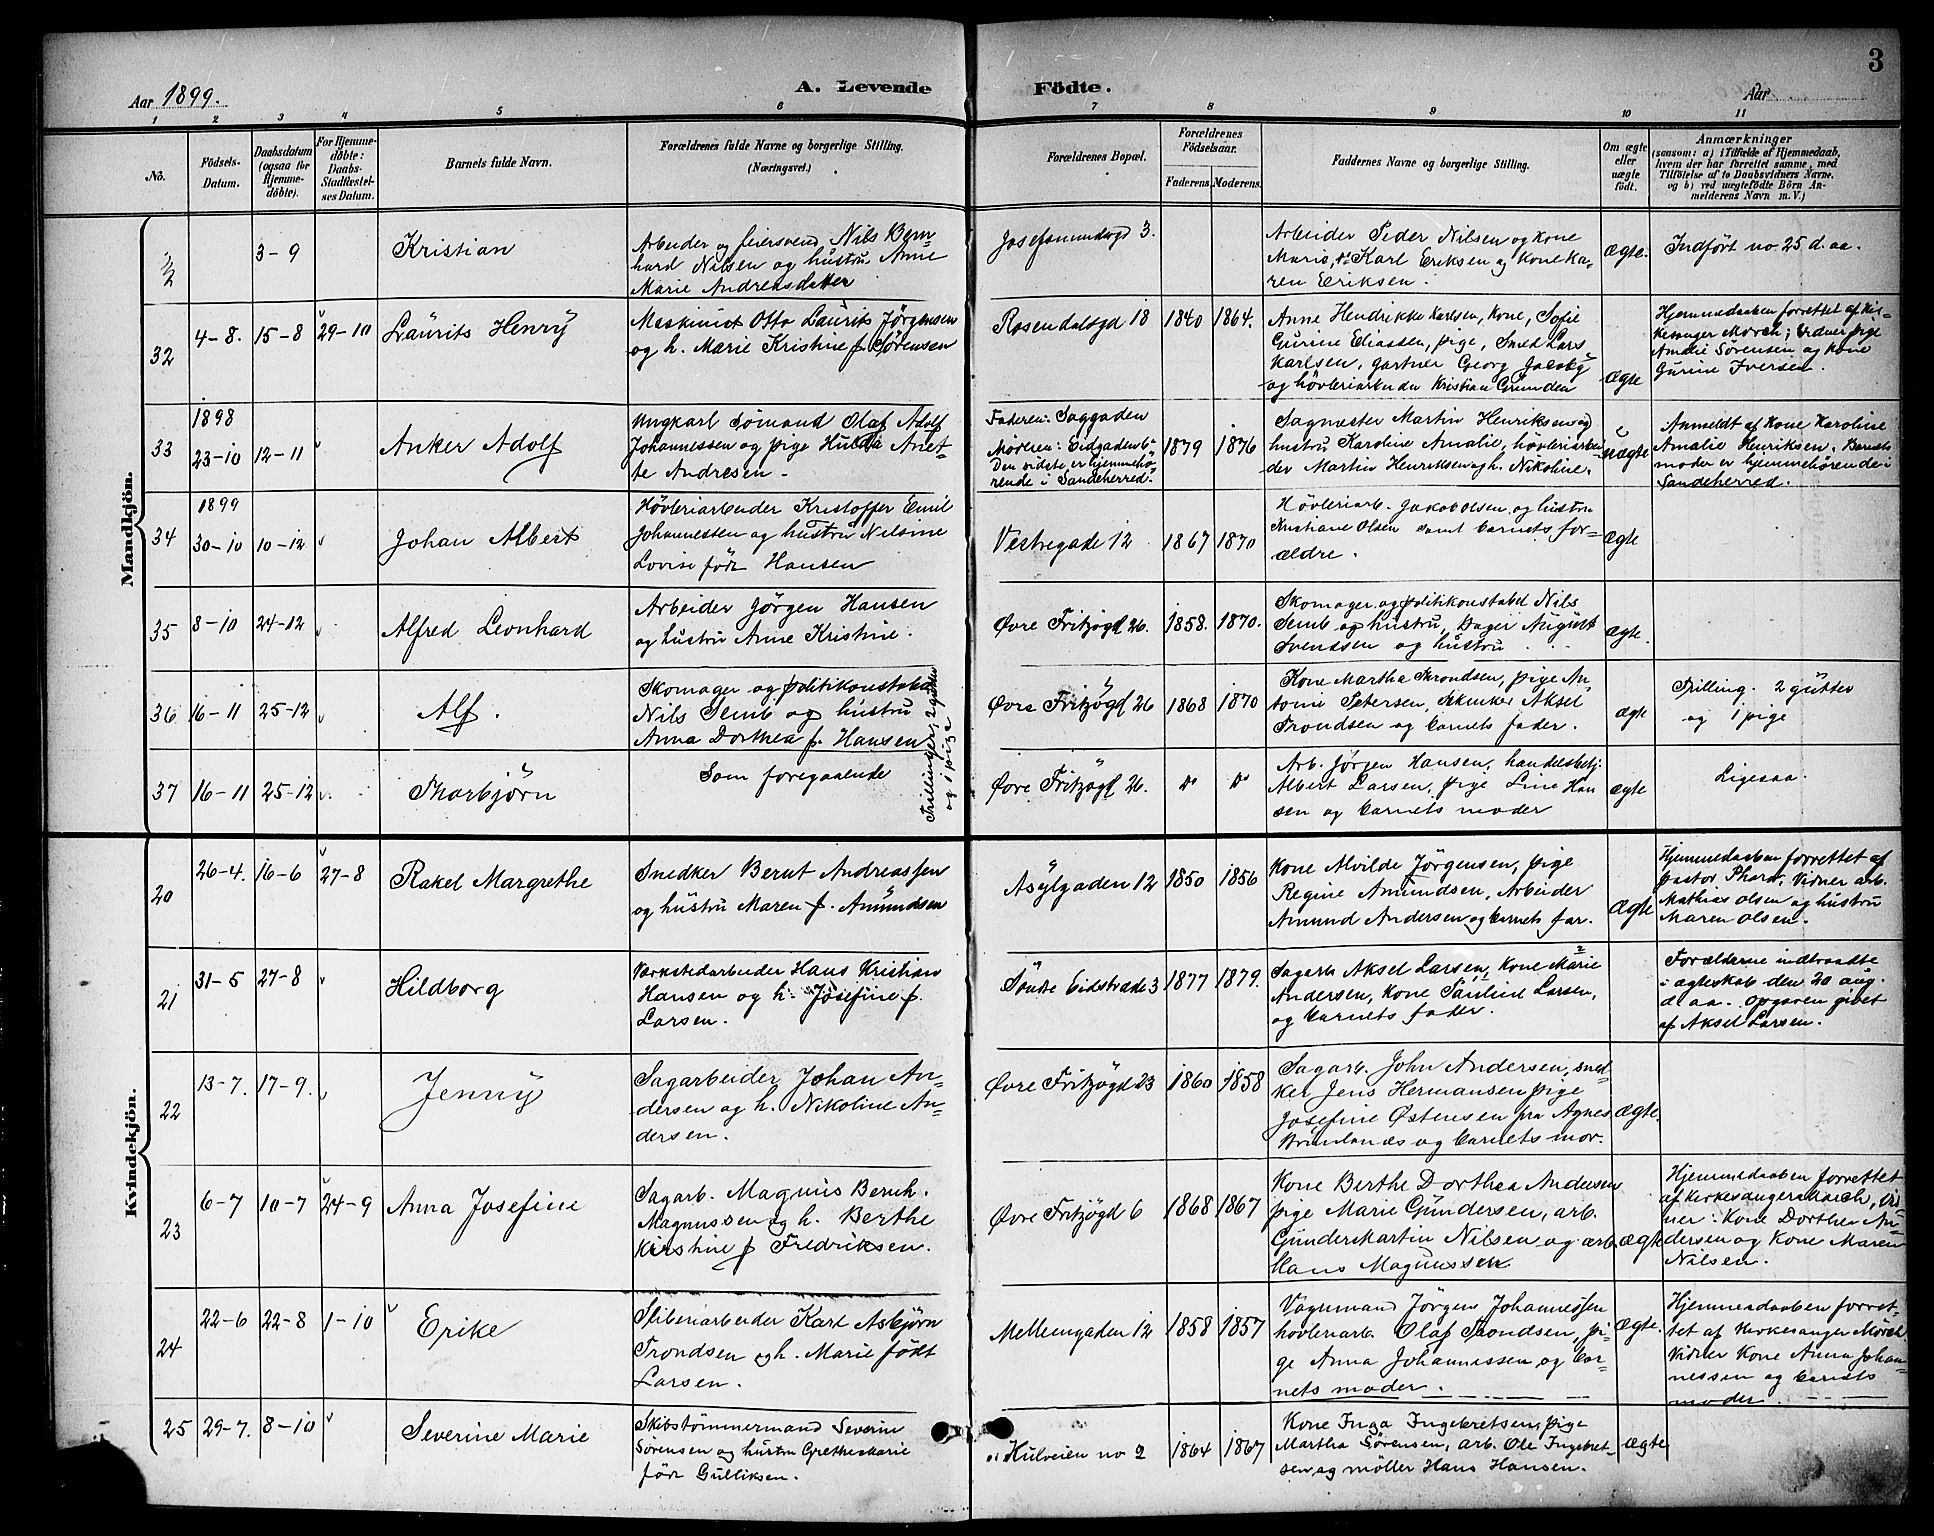 3
Aar 1899.
A. Levende Födte.
Aar
1 2 3 4 5 6 7 8 9 10 11
No.
Födsels-
Datum.
Daabsdatum
(ogsaa for
Hjemme-
döbte).
For Hjemme-
döbte:
Daabs-
Stadfæstel-
ses Datum.
Barnets fulde Navn.
Forældrenes fulde Navne og borgerlige Stilling.
(Næringsvei.)
Forældrenes Bopæl.
Forældrenes
Födselsaar.
Faderens. Moderens.
Faddernes Navne og borgerlige Stilling.
Om ægte
eller
uægte
födt.
Anmærkninger
(saasom: a) i Tilfælde af Hjemmedaab,
hvem der har forrettet samme, med
Tilföielse af to Daabsvidners Navne.
og b) ved uægtefödte Börn An-
melderens Navn m. V.)
Mandkjön.
3-9
Kristian
Arbeider og feiersvend Nils Bern-
hard Nilsen og hustru Anne
Marie Andreasdatter
3.
Arbeider Peder Nilsen og Kone
Maria, Karl Eriksen og Kone Ka-
ren Eriksen.
ægte.
Indført no 25 d. aa.
32
4-8.
15-8
29-10
Laurits Henry
Maskinist Otto Laurits Jörgensen
og h. Marie Kristine f. Sørensen
Rosendalsgd 18
1840
1864.
Anne Hendrikke Karlsen, Kone, Sofie
Gurine Eliassen, pige, Smed Lars
Karlsen, gartner Georg Jacoby
og høvleriarbeider Kristian Grunden
ægte
Hjemmedaaben forrettet af kir-
kesanger Mørch; Vidner pige
Amalie Sørensen og Kone
Gurine Iversen.
33
1898
23-10
12-11
Anker Adolf
Ungkarl Sømand Olaf Adolf
Johannessen og pige Hulda Anet-
te Andresen.
Faderen: Saggaden
Moderen: Eidgaden 6
Den sidste er hjemmehö-
rende i Sandeherred.
1879
1876
Sagmester Martin Henriksen og
hustru Karoline Amalie, høvleriarbei-
der Martin Henriksen og h. Nikoline.
uægte
Anmeldt af Kone Karoline
Amalie Henriksen. Barnets
moder er hjemmehörende i
Sandeherred.
34
1899
30-10
10-12
Johan Albert
Høvleriarbeider Kristoffer Emil
Johannessen og hustru Nilsine
Lovise födt Hansen
Vestregade 12
1867
1870
Høvleriarb. Jakob Olsen og hustru
Kristiane Olsen samt barnets for-
ældre.
ægte
35
8-10
24-12
Alfred Leonhard
Arbeider Jörgen Hansen
og hustru Anne Kristine.
Øvre Fritzøgd 26.
1858.
1870.
Skomager og politikonstabel Nils
Semb og hustru, Bager August
Svendsen og hustru
ægte.
36
16-11
25-12
Alf.
Skomager og politikonstabel
Nils Semb og hustru
Anna Dorthea f. Hansen
Trillinger, 2 gutter
og 1 pige
Øvre Fritzøgd 26
1868
1870
Kone Martha Trondsen, pige An-
tonie Petersen, Skenker Aksel
Trondsen og barnets fader.
ægte
Trilling. 2 gutter
og 1 pige
37
16-11
25-12
Thorbjörn
Som foregaaende
Øvre Fritzøgd 26.
Do
Do
Arb. Jørgen Hansen, handelsbetj.
Albert Larsen, pige Line Han
sen og barnets moder
ægte
Ligesaa.
Kvindekjön.
20
26-4.
16-6
27-8
Rakel Margrethe
Snedker Bernt Andreassen
og hustru Maren f. Amundsen
Asylgaden 12
1850
1856
Kone Alvilde Jørgensen, pige
Regine Amundsen, Arbeider
Amund Andersen og barnets far.
Ægte
Hjemmedaaben forrettet af
pastor Pharo, Vidner arb.
Mathias Olsen og hustru
Maren Olsen.
21
31-5
27-8
Hildborg
Værkstedarbeider Hans Kristian
Hansen og h. Josefine f.
Larsen.
Söndre Eidstræde 3
1877
1879.
Sagarb. Aksel Larsen, Kone Marie
Andersen, Kone Larsen,
og barnets fader.
Forældrene indtraadte
i ægteskab den 20 aug.
d. aa. Opgaven givet
af Aksel Larsen.
22
13-7.
17-9.
Jenny
Sagarbeider Johan An-
dersen og h. Nikoline An-
dersen.
Øvre Fritzøgd 23
1860
1858
Sagarb. John Andersen, sned-
ker Jens Hermansen pige
Josefine Østensen fra Agnes
Brunlanæs og barnets mor.
ægte.
23
6-7
10-7
24-9
Anna Josefine
Sagarb. Magnus Bernh.
Magnussen og h. Berthe
Kirstine f Fredriksen.
Øvre Fritzøgd 6
1868
1867
Kone Berthe Dorthea Andersen
pige Marie Gundersen, arb.
Gunder Martin Nilsen og arb.
Hans Magnussen
ægte
Hjemmedaaben forrettet
af Kirkesanger Mørch, Vid-
ner: Kone Dorthea An-
dersen og Kone Maren
Nilsen.
24
22-6
22-8
1-10
Erike
Sliberiarbeider Karl Asbjörn
Trondsen og h. Marie født
Larsen.
Mellemgaden 12
1858
1857
Vognmand Jörgen Johannessen
høvleriarb. Olaf Trondsen, pi-
ge Anna Johannessen og bar-
nets moder.
Ægte.
Hjemmedaaben forret-
tet af Kirkesanger Mørch
Vidner Kone Anna Johan-
nessen og barnets
moder.
25
29-7.
8-10
Severine Marie
Skibstömmermand Severin
Sørensen og hustru Grethe Marie
födt Gulliksen.
Kulveien no 2
1864
1867
Kone Inga Ingebretsen, pige
Martha Sørensen, arb. Ole Ingebret-
sen og møller Hans Hansen.
ægte